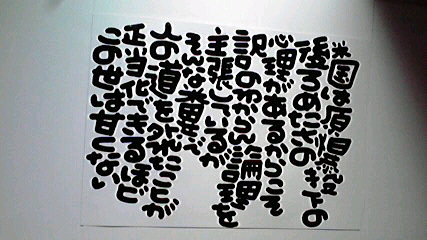 米国は原爆投下の
後ろめたさの
心理があるからこそ
訳のわからない論理を
主張しているが
そんな糞で
人の道を外れたことが
正当化できるほど
この世は甘くない